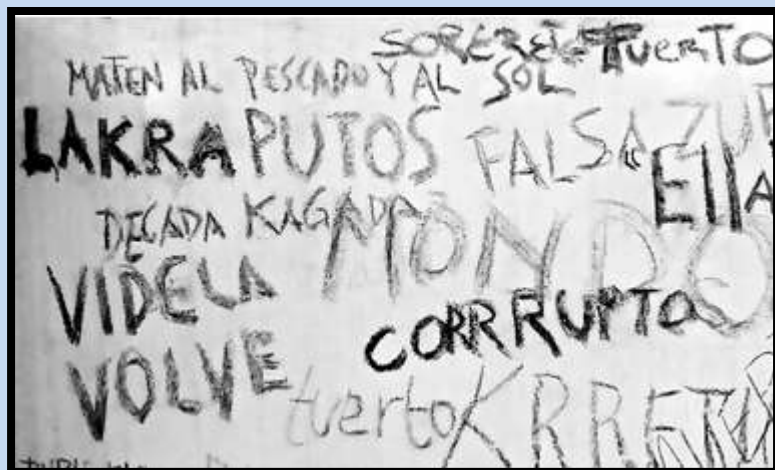 TUERTO
MATEN AL PESCADO Y AL SOL
LAKRA PUTOS FALSA
Ella
DECADA KAGADA
MONDO
VIDELA
CORRRUPTO
VOLVE
tuerto